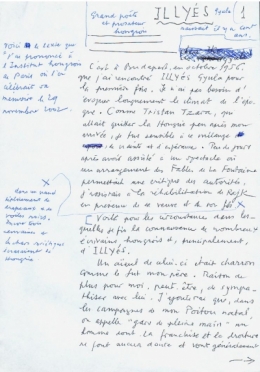 Grand poète
et prosateur
hongrois
ILLYÉS
Gyula
1
naissait il y a cent
ans.
Voici le texte que
j'ai prononcé à
l'Institut hongrois
de Paris où l'on
célébrait sa
mémoire le 29
novembre 2002.
C'est à Budapest, en octobre 1956,
que j'ai rencontré ILLYÉS Gyula pour
la première fois. Je n'ai pas besoin d'
évoquer longuement le climat de l'épo-
que. Comme Tristan Tzara, qui
allait quitter la Hongrie peu après mon
arrivée, je fus sensible à ce mélange
de crainte et d'espérance. Peu de jours
après avoir assisté à un spectacle où
un arrangement des Fables de La Fontaine
permettait une critique des autorités,
j'assistai à la réhabilitation de Rajk,
en présence de sa veuve et de son fils.
X
dans un grand
déploiement de
drapeaux
Voilà pour les circonstances dans les-
quelles je fis la connaissance de nombreux
écrivains hongrois et, principalement,
d'ILLYÉS.
Un aïeul de celui-ci était charron
comme le fut mon père. Raison de
plus pour moi, peut-être, de sympa-
thiser avec lui. J'ajouterai que, dans
les campagnes de mon Poitou natal
on appelle "gars de pleine main" un
homme sûr. La franchise et la droiture
ne font aucun doute et vont généralement